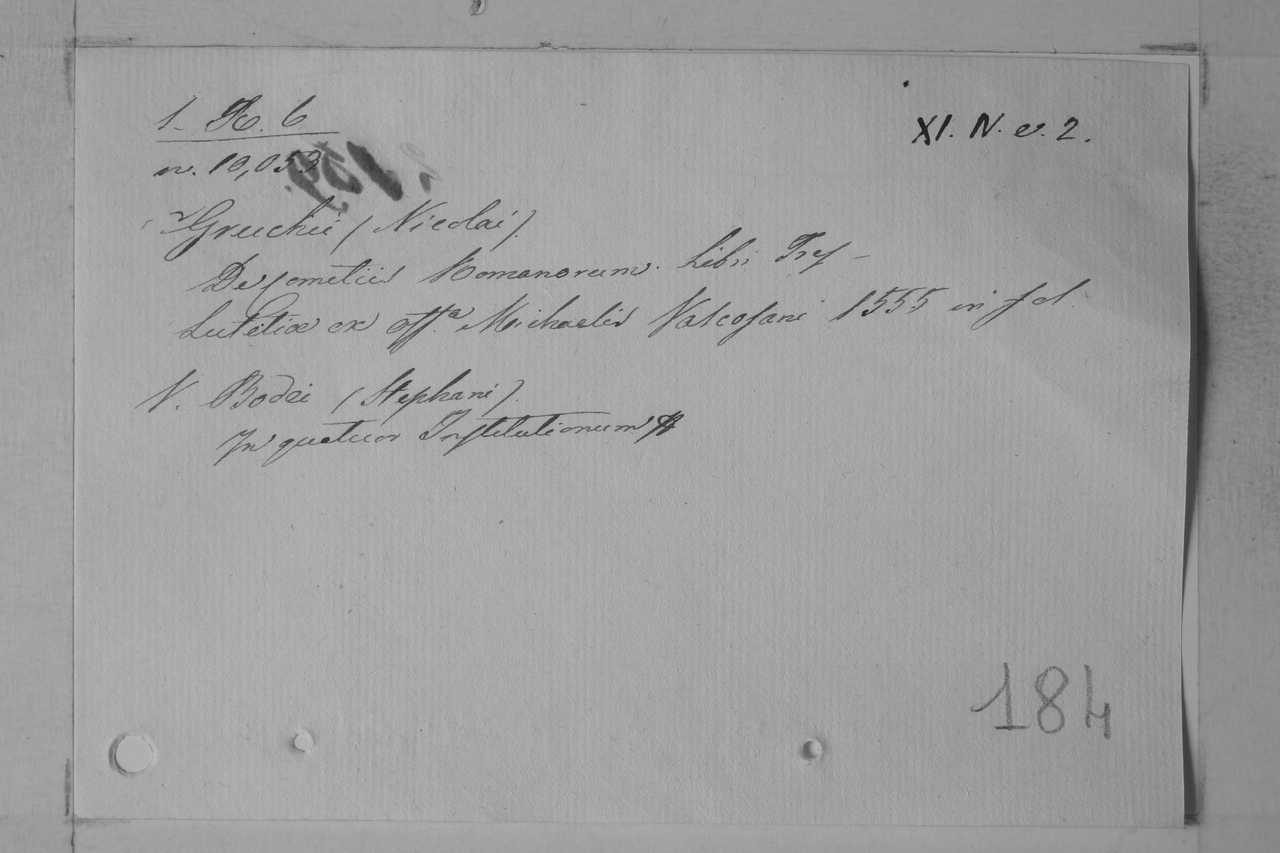 1. R. 6
XI. N. e. 2.
n. 10,053
159.
Gruchii (Nicolai).
De Comitiis Romanorum. Libri Tres -
Lutetiæ ex offa Michaelis Vascosani 1555 in fol.
V. Bodei (Stephani).
In quatuor Institutionum
184